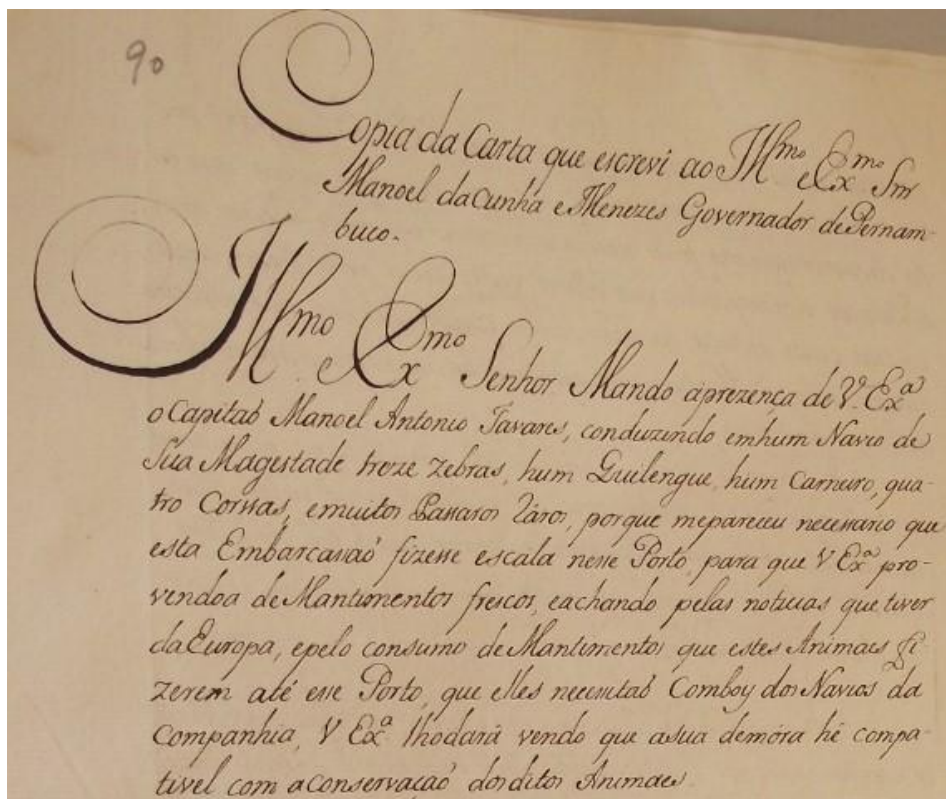 90
Copia da Carta que escrevi ao Illmo e Exmo Snr
Manoel daCunha eMenezes Governador dePernam-
buco.
Illmo e Exmo Senhor Mando aprezença de V. Exª
o Capitaõ Manoel Antonio Tavares, conduzindo emhum Navio de
Sua Magestade treze Zebras, hum Guilengue, hum Carneiro, qua-
tro Corssas, emuitos Passaros Raros, porque mepareceu necessario que
esta Embarcassaõ fizesse escala nesse Porto, para que V Exª pro-
vendoa deMantimentos frescos, eachando pelas noticias que tiver
daEuropa, epelo consumo deMantimentos que estes Animaes fi-
zerem até esse Porto, que elles necessitaõ Comboy dosNavios da
Companhia, V Exª lhodará vendo que asua demóra hé compa-
tivel com aconservaçaõ dosditos Animaes